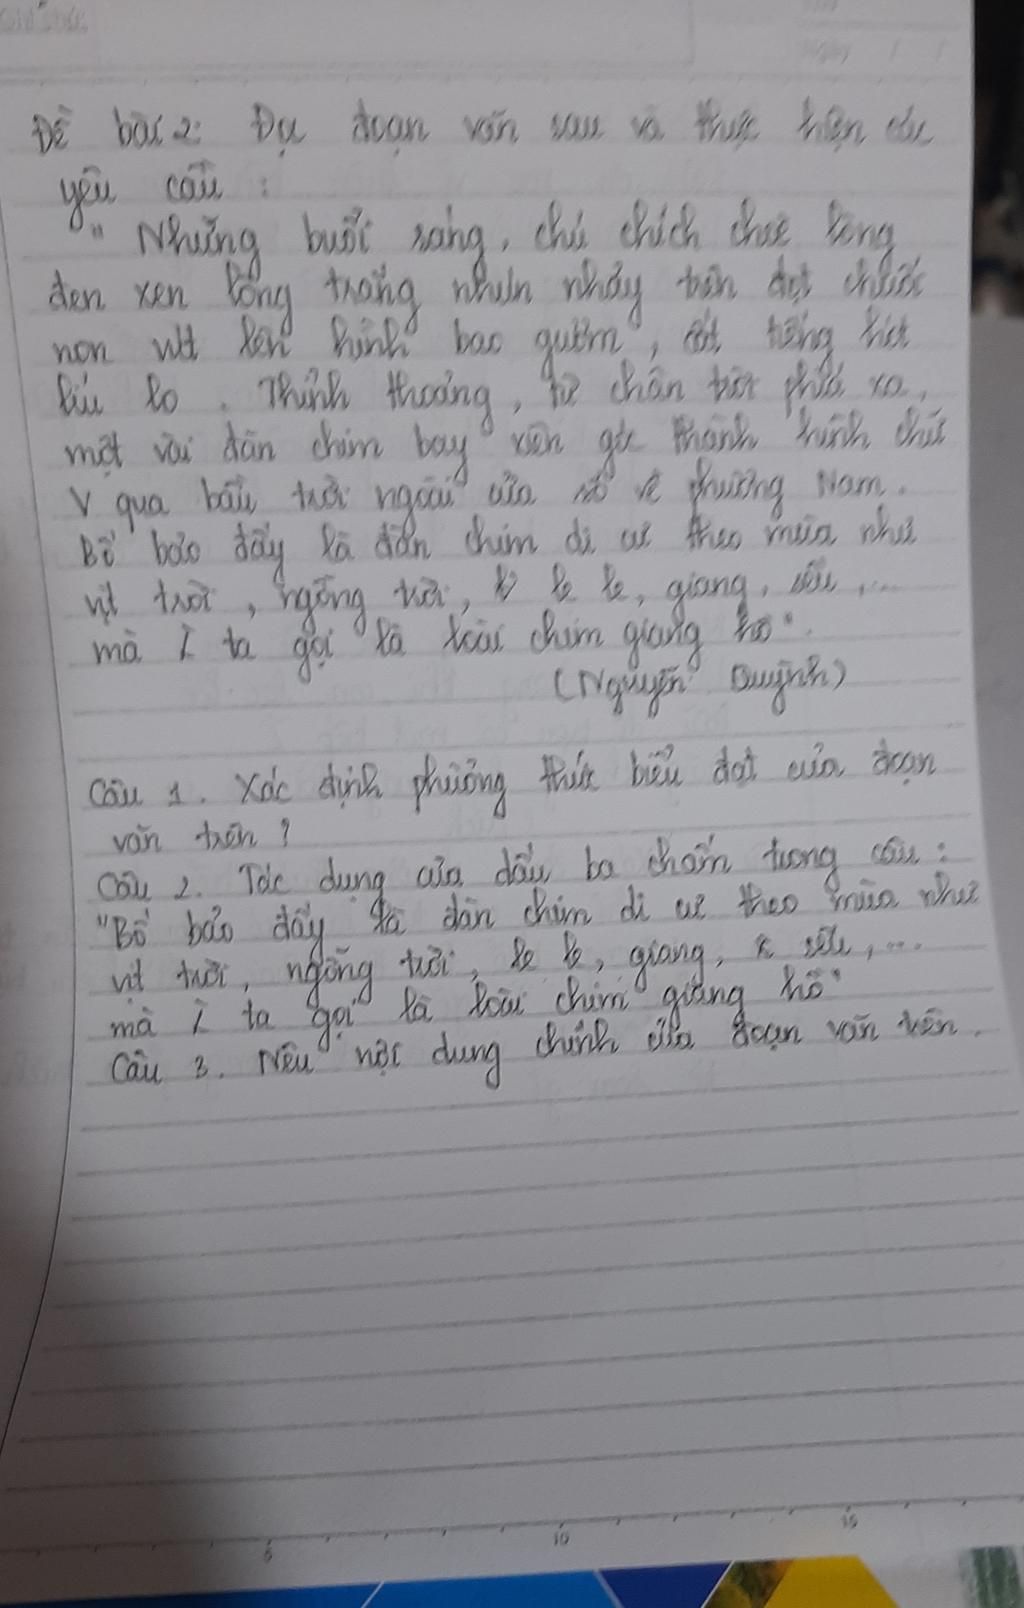 Đề bài 2: Đọc đoạn văn sau và thực hiện các
yêu cầu :
" Những buổi sáng, chú chích chòe lông
đen xen lông trắng nhún nhảy trên đọt chuối
non vút lên hình bao gươm, cất tiếng hót
líu lo . Thỉnh thoảng, từ chân trời phía xa,
một vài đàn chim bay xiên góc thành hình chữ
V qua bầu trời ngoài cửa sổ về phương Nam.
Bố bảo đấy là đàn chim di cư theo mùa như
vịt trời, ngỗng trời, le le, giang, sếu, ...
mà ta gọi là loài chim giang hồ".
(Nguyễn Quỳnh)
Câu 1. Xác định phương thức biểu đạt của đoạn
văn trên ?
Câu 2. Tác dụng của dấu ba chấm trong câu :
"Bố bảo đấy là đàn chim di cư theo mùa như
vịt trời, ngỗng trời, le le, giang, sếu, ...
mà ta gọi là loài chim giang hồ"
Câu 3. Nêu nội dung chính của đoạn văn trên .
5 10 15